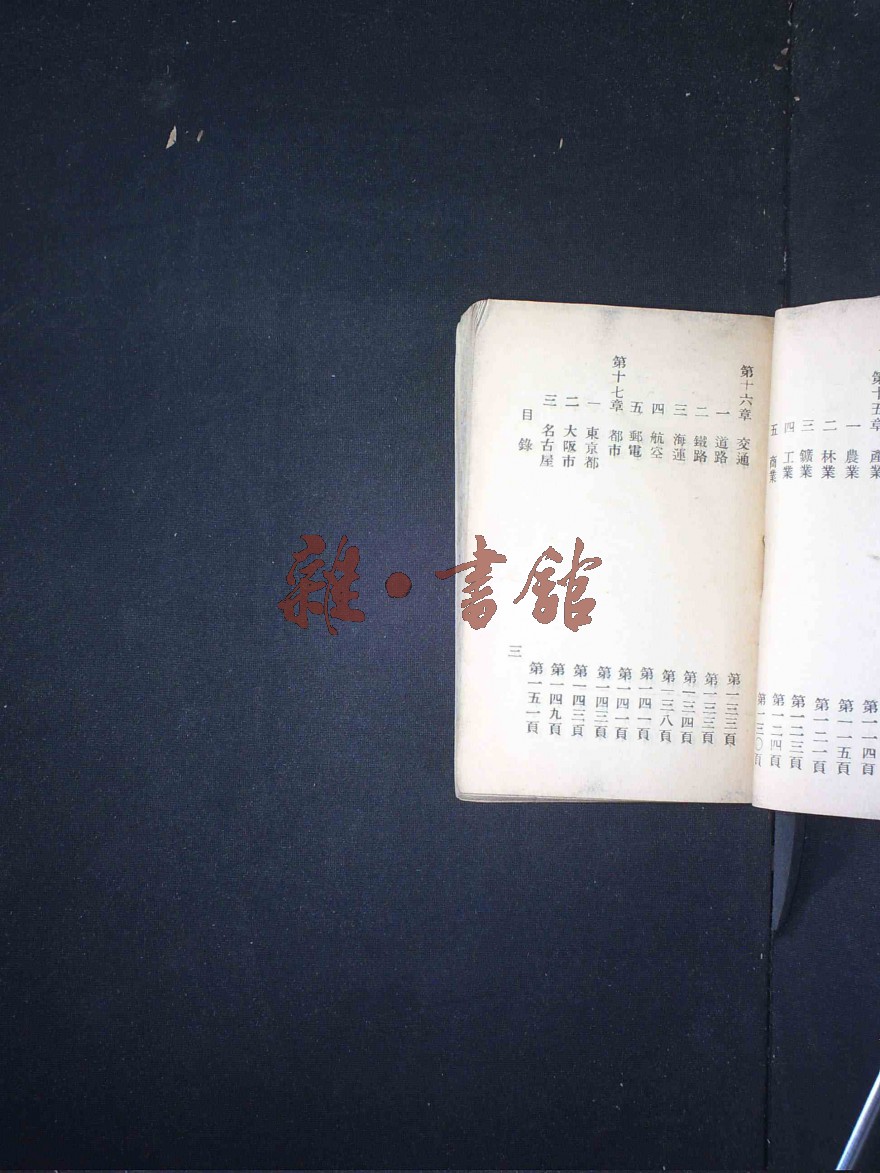 第十五章 產業 第一一四頁
一 農業 第一一五頁
二 林業 第一二一頁
三 鑛業 第一二三頁
四 工業 第一二四頁
五 商業 第一三〇頁
第十六章 交通 第一三三頁
一 道路 第一三三頁
二 鐵路 第一三四頁
三 海運 第一三八頁
四 航空 第一四一頁
五 郵電 第一四一頁
第十七章 都市 第一四三頁
一 東京都 第一四三頁
二 大阪市 第一四九頁
三 名古屋 第一五一頁
目錄 三
雜·書館